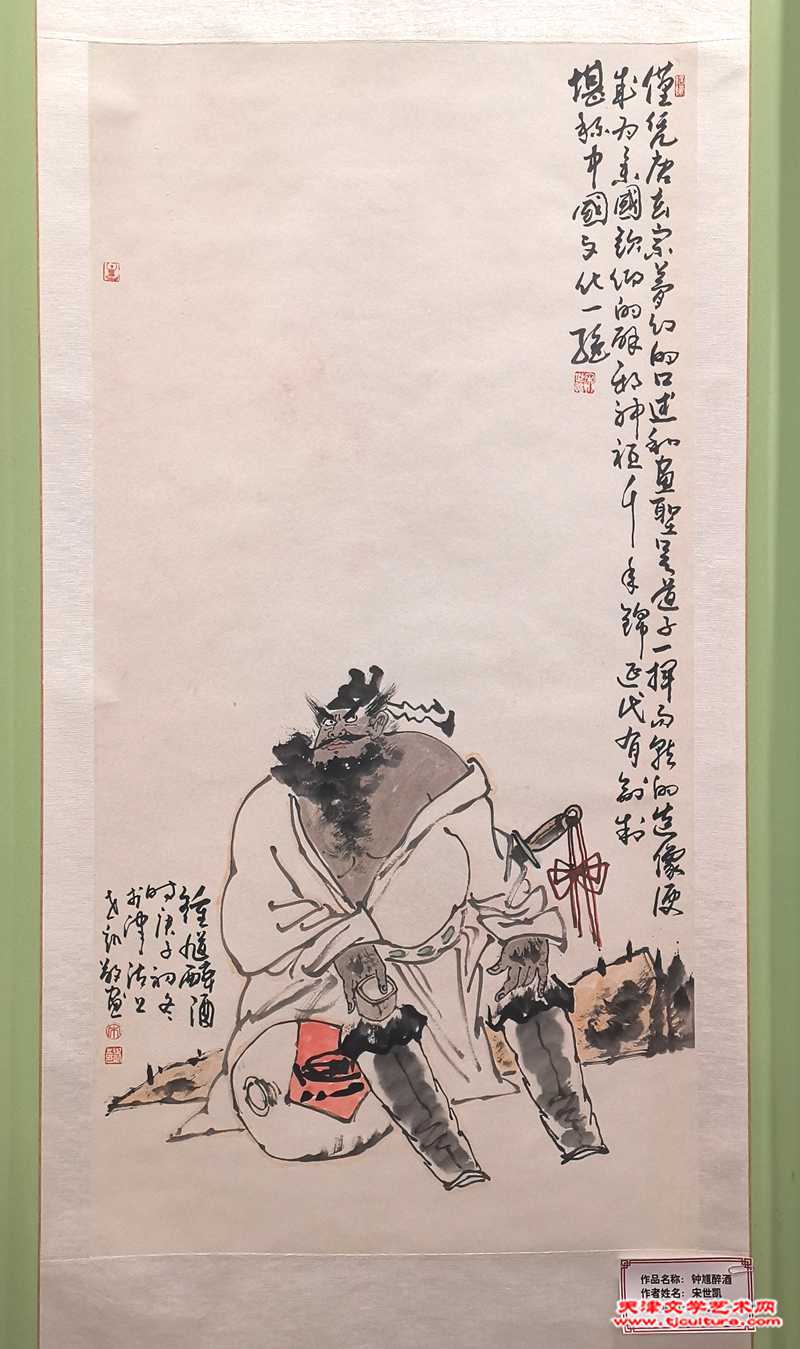 僅凭唐玄宗夢幻的口述和畫聖吳道子一揮而就的造像便
成为美國欽仰的辟邪神祗千年錦延代有翻制
堪称中國文化一绝
鍾馗醉酒
时庚子初冬
於津沽上
世凱敬画
作品名称：钟馗醉酒
作者姓名：宋世凯
天津文学艺术网
www.tjcultura.com